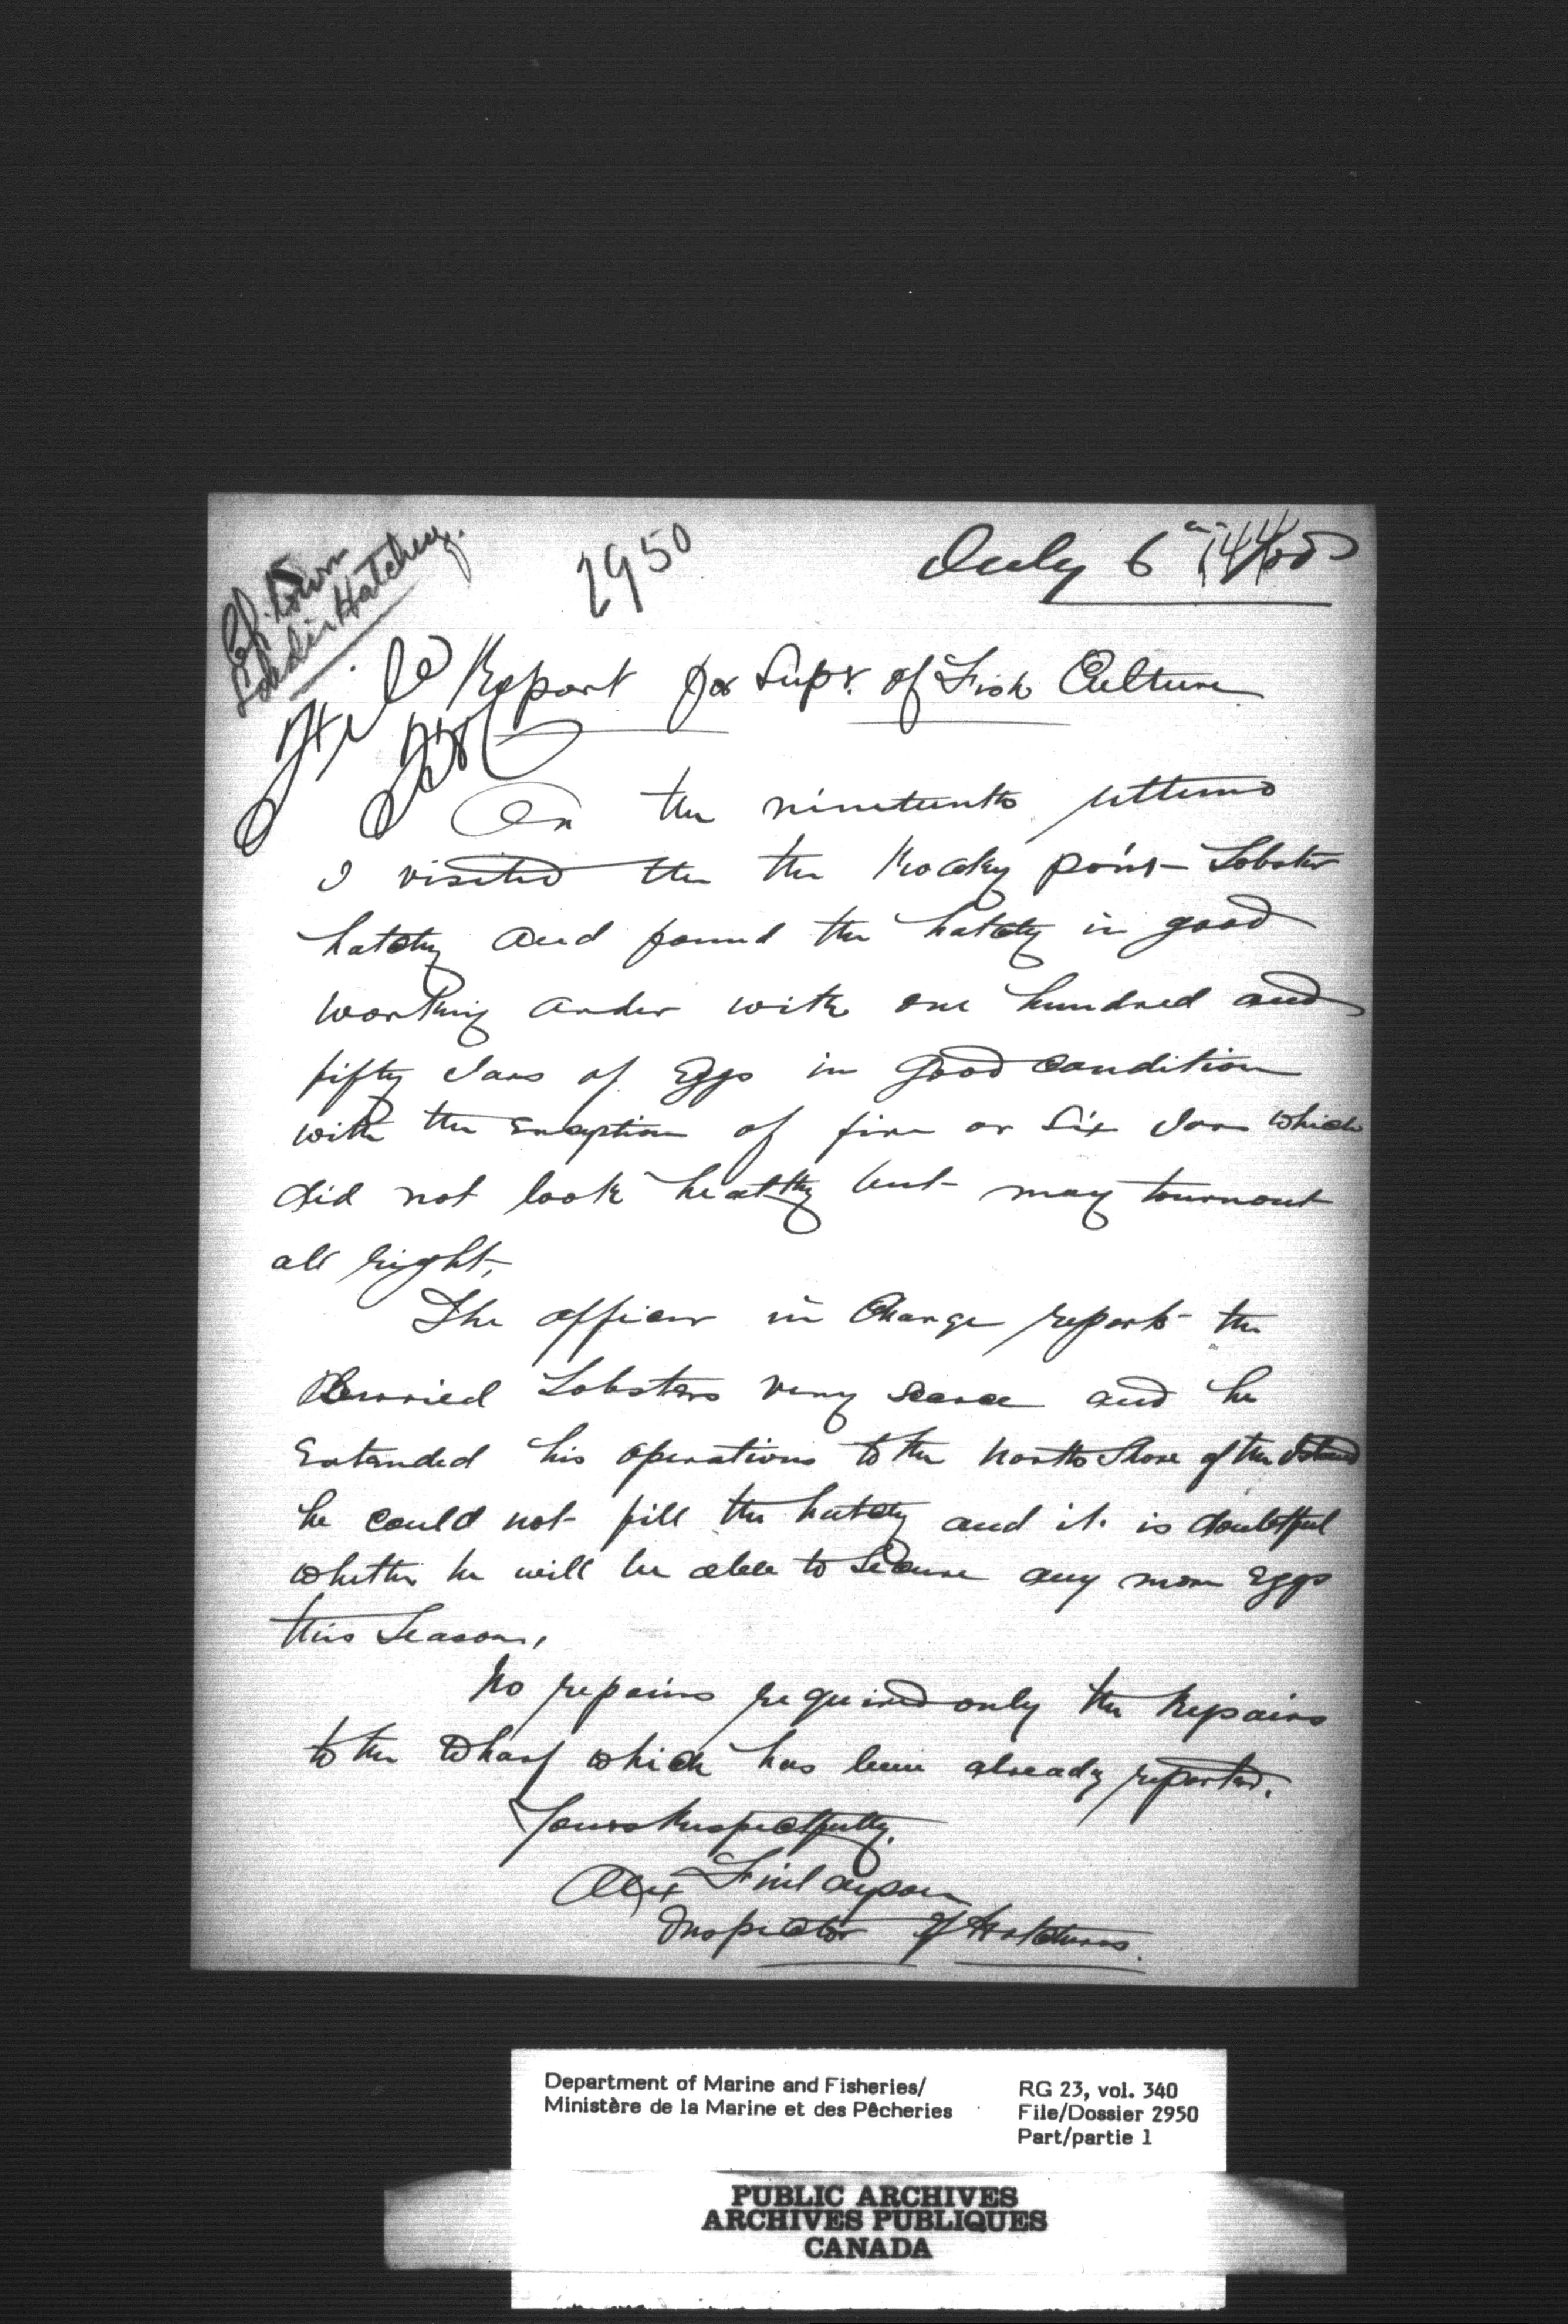 Ch.town
Lobster Hatchery.
2950
July 6th
File
Report for Supt. of Fish Culture
On the nineteenth ultimo
I visited the the Rocky point Lobster
hatchy and found the hatchy in good
working order with one hundred and
fifty Jars of Eggs in good condition
with the Exception of five or Six Jars which
did not look healthy but may tournout
all right,
The officer in Charge reports the
Berried Lobsters very scarce and he
Extended his operations to the North Shore of the Island
he could not fill the hatchy and it is doubtful
whether he will be able to Secure any more Eggs
this Season,
No repairs required only the Repairs
to the Wharf which has been already reported.
Yours Respectfully,
Alex Finlayson
Inspector of Hatcheries.
Department of Marine and Fisheries/
Ministère de la Marine et des Pêcheries
RG 23, vol. 340
File/Dossier 2950
Part/partie 1
PUBLIC ARCHIVES
ARCHIVES PUBLIQUES
CANADA